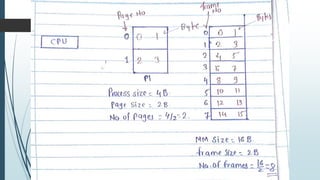 Page No
frame No
Byte
Bytes
CPU
0 0 1
1 2 3
P1
0 0 1
1 2 3
2 4 5
3 6 7
4 8 9
5 10 11
6 12 13
7 14 15
Process size = 4B
Page size = 2B
No. of Pages = 4/2 = 2
MM Size = 16B
frame size = 2B
No. of frames = 16/2 = 8